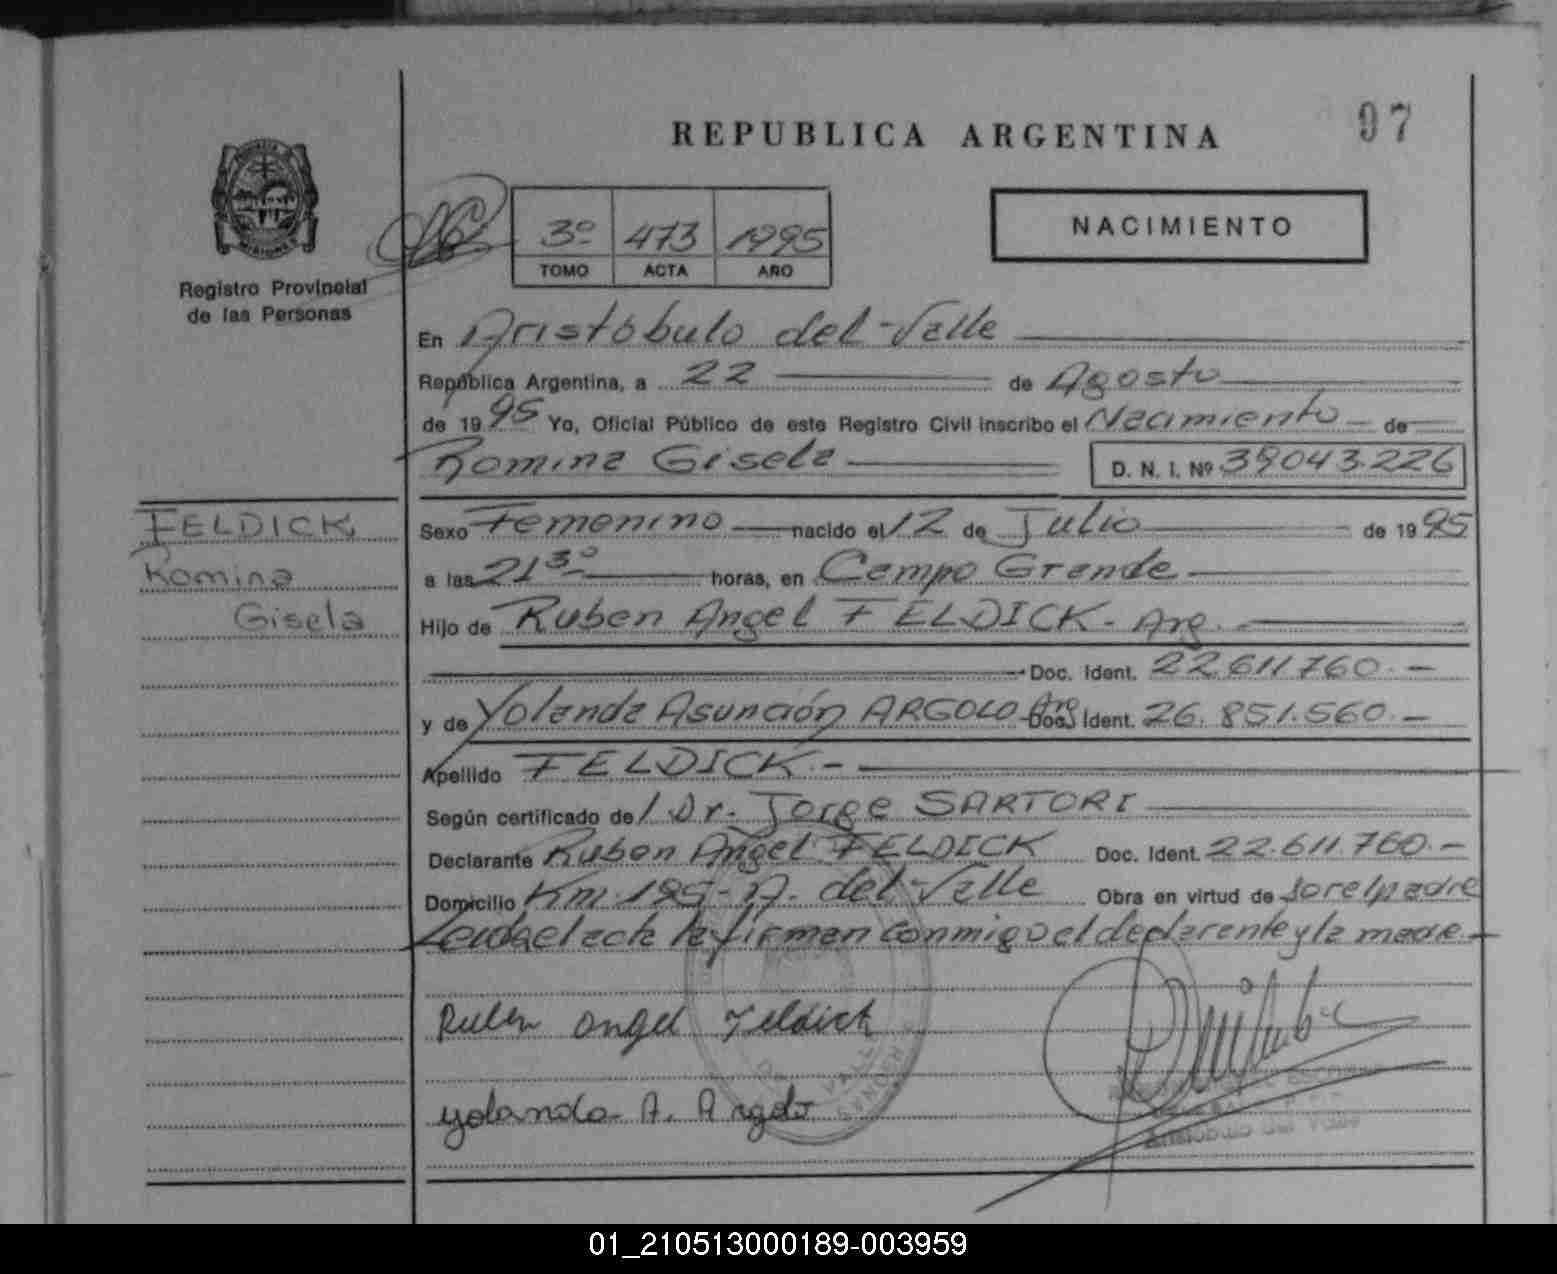 REPUBLICA ARGENTINA
97
Registro Provincial
de las Personas
3º 473 1995
TOMO ACTA AÑO
NACIMIENTO
En Aristóbulo del Valle
República Argentina, a 22 de Agosto
de 1995 Yo, Oficial Público de este Registro Civil inscribo el Nacimiento de
Romina Gisela D. N. I. Nº 39043.226
FELDICK
Romina
Gisela
Sexo Femenino nacido el 12 de Julio de 1995
a las 21 3º horas, en Campo Grande
Hijo de Ruben Angel FELDICK - Arg.
Doc. Ident. 22.611.760.-
y de Yolanda Asunción ARGOLO Arg Doc. Ident. 26.851.560.-
Apellido FELDICK.-
Según certificado de / Dr. Jorge SARTORI
Declarante Ruben Angel FELDICK Doc. Ident. 22.611.760.-
Domicilio Km. 185 - A. del Valle Obra en virtud de ser el padre
Leída el acta la firman conmigo el declarante y la madre.-
Ruben angel Feldick
yolanda A. Argolo
Aristóbulo del Valle
01_210513000189-003959